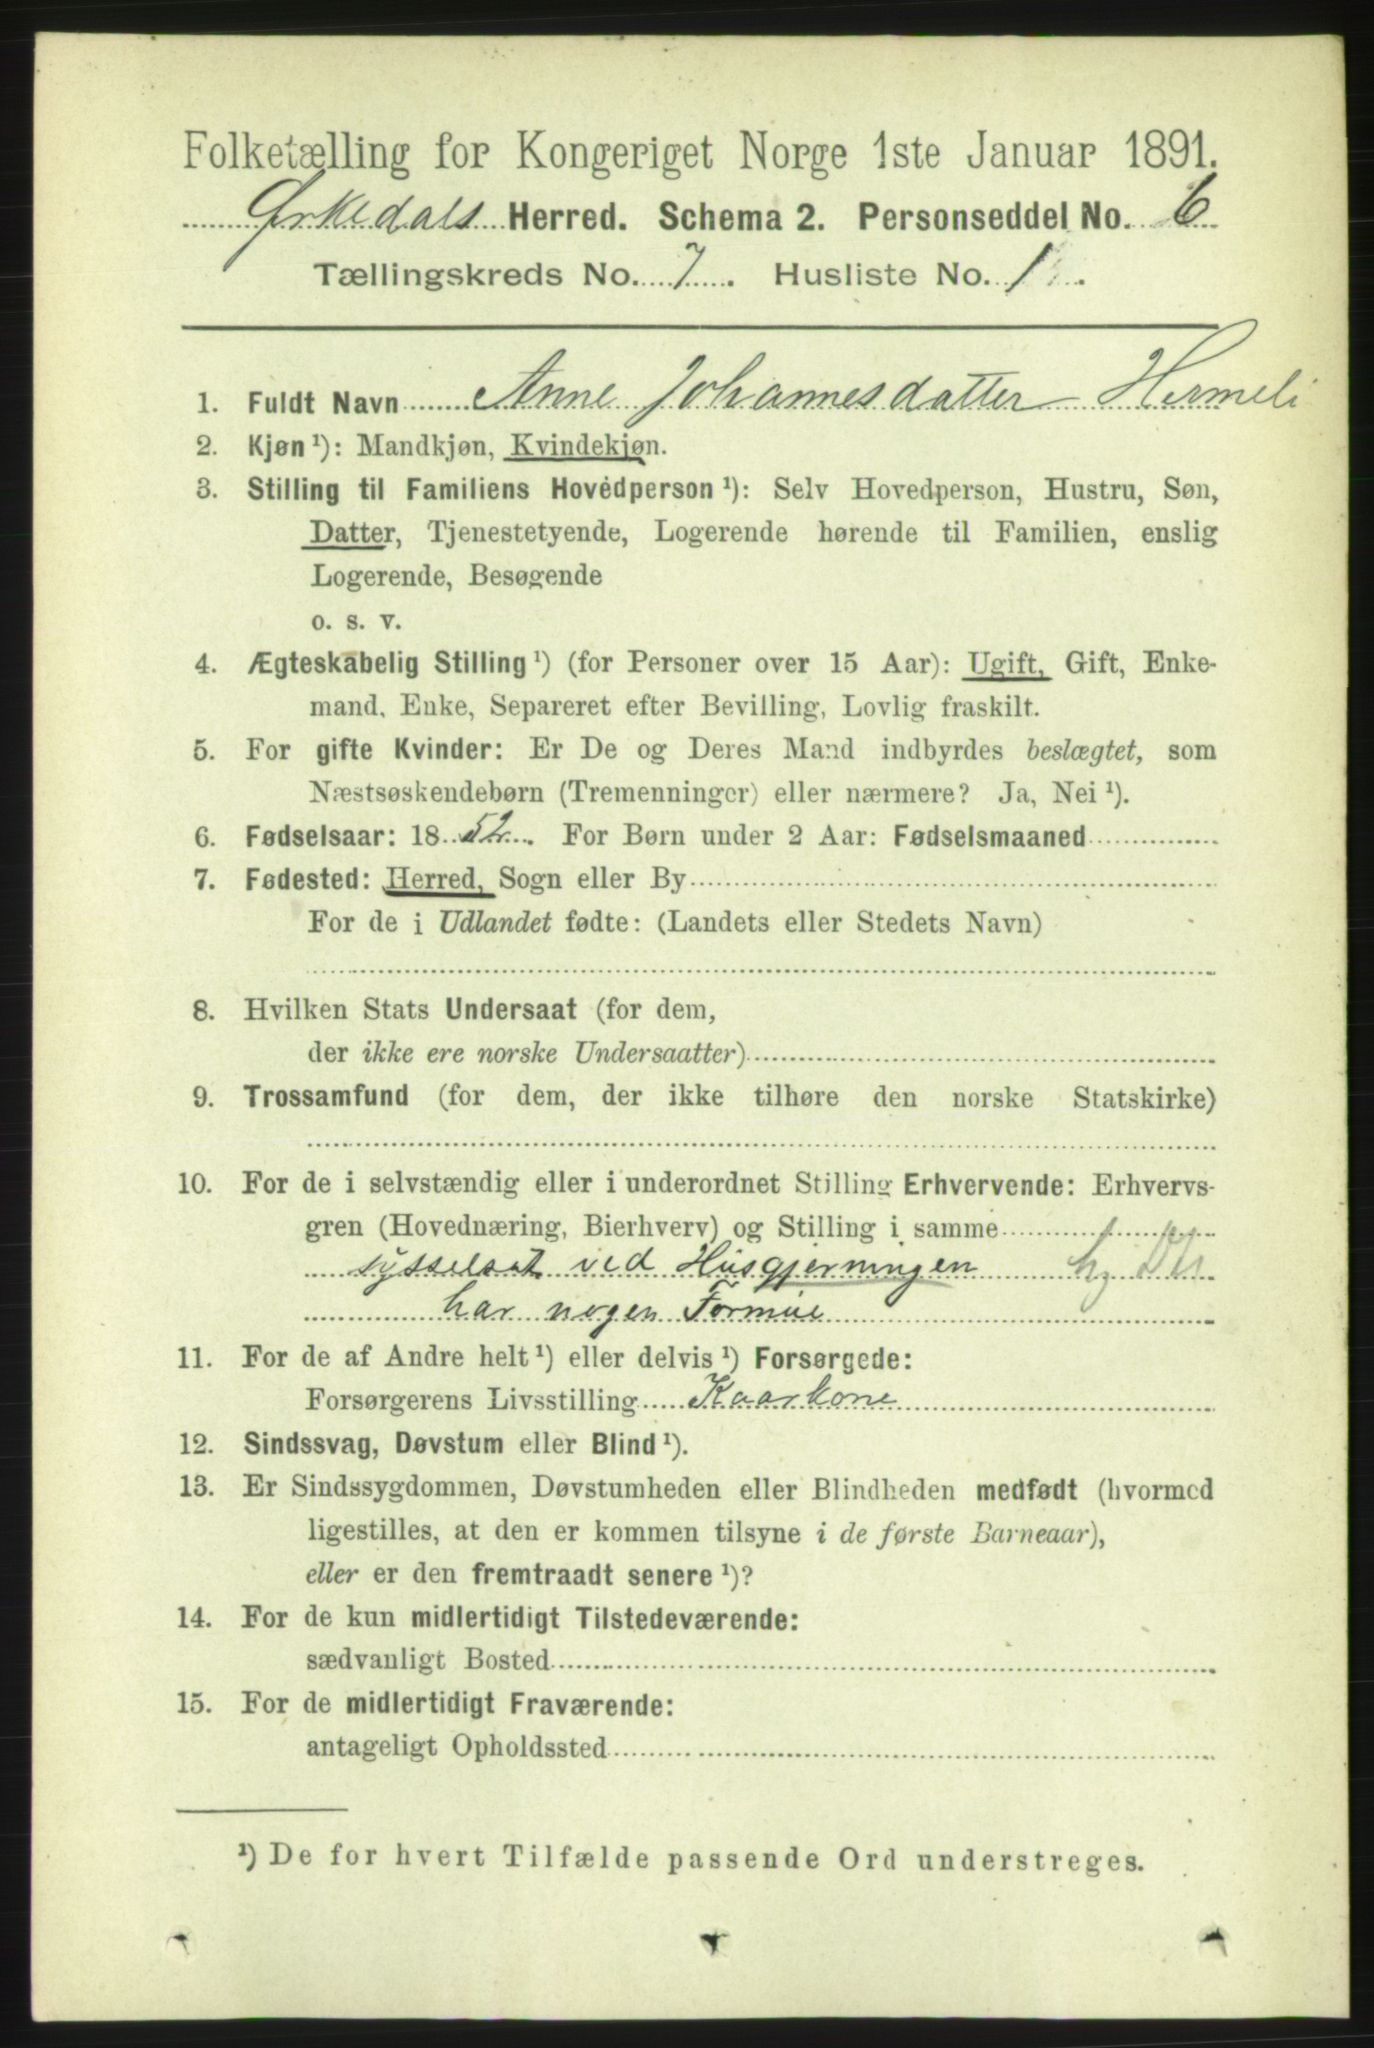 Folketælling for Kongeriget Norge 1ste Januar 1891.
Ørkedals Herred. Schema 2. Personseddel No. 6
Tællingskreds No. 7. Husliste No. 1.
1. Fuldt Navn Anne Johannesdatter Hermeli
2. Kjøn ¹): Mandkjøn, Kvindekjøn.
3. Stilling til Familiens Hovedperson ¹): Selv Hovedperson, Hustru, Søn,
Datter, Tjenestetyende, Logerende hørende til Familien, enslig
Logerende, Besøgende
o. s. v.
4. Ægteskabelig Stilling ¹) (for Personer over 15 Aar): Ugift, Gift, Enke-
mand, Enke, Separeret efter Bevilling, Lovlig fraskilt.
5. For gifte Kvinder: Er De og Deres Mand indbyrdes beslægtet, som
Næstsøskendebørn (Tremenninger) eller nærmere? Ja, Nei ¹).
6. Fødselsaar: 1852. For Børn under 2 Aar: Fødselsmaaned
7. Fødested: Herred, Sogn eller By
For de i Udlandet fødte: (Landets eller Stedets Navn)
8. Hvilken Stats Undersaat (for dem,
der ikke ere norske Undersaatter)
9. Trossamfund (for dem, der ikke tilhøre den norske Statskirke)
10. For de i selvstændig eller i underordnet Stilling Erhvervende: Erhvervs-
gren (Hovednæring, Bierhverv) og Stilling i samme
sysselsat ved Husgjerningen
har nogen Formue
11. For de af Andre helt ¹) eller delvis ¹) Forsørgede:
Forsørgerens Livsstilling Kaarkone
12. Sindssvag, Døvstum eller Blind ¹).
13. Er Sindssygdommen, Døvstumheden eller Blindheden medfødt (hvormed
ligestilles, at den er kommen tilsyne i de første Barneaar),
eller er den fremtraadt senere ¹)?
14. For de kun midlertidigt Tilstedeværende:
sædvanligt Bosted
15. For de midlertidigt Fraværende:
antageligt Opholdssted
¹) De for hvert Tilfælde passende Ord understreges.